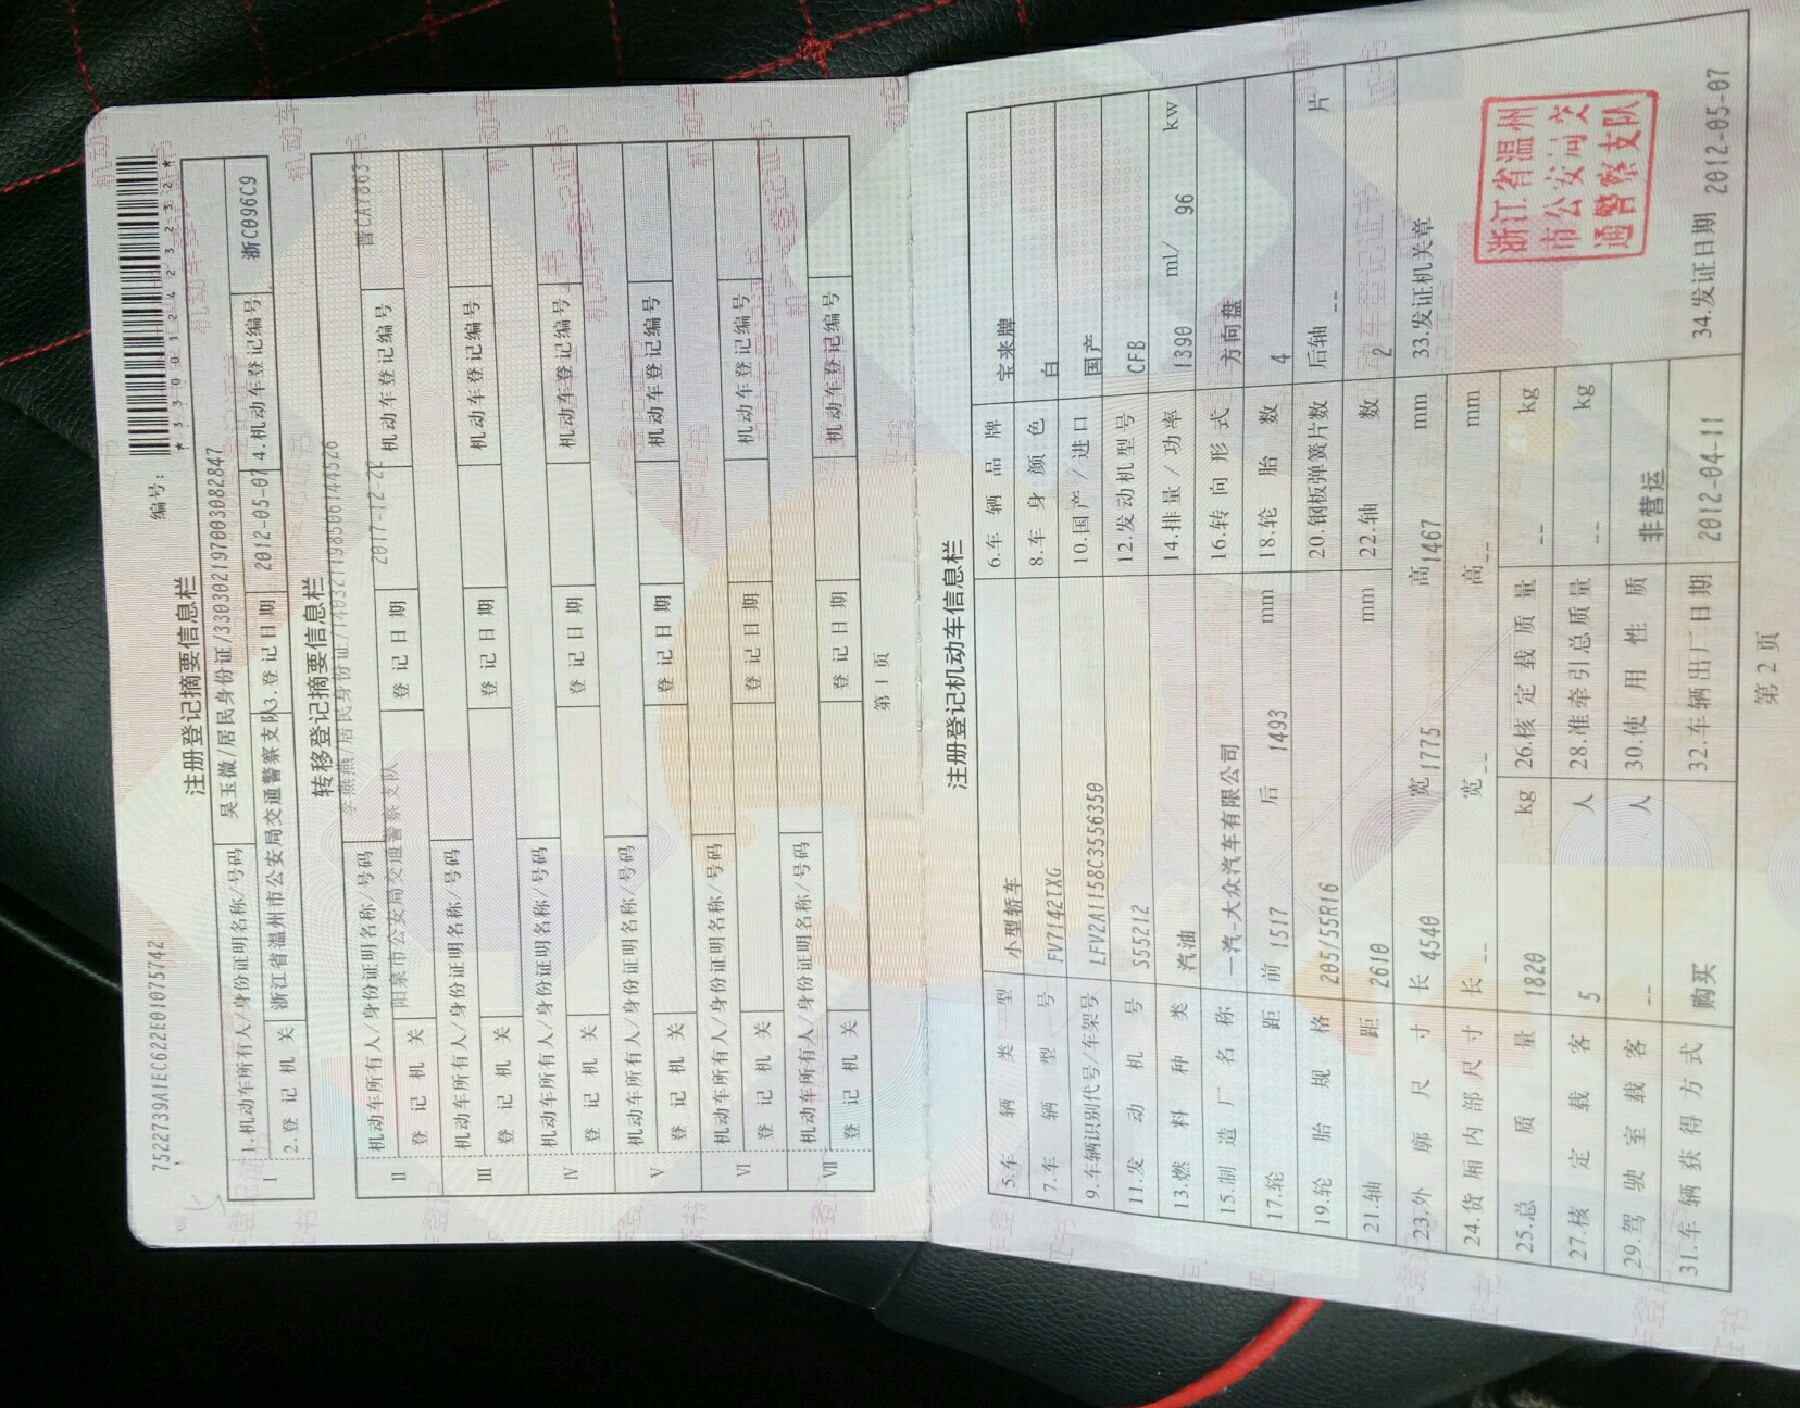 7522739A1EC622E01075742
编号:
*330012423232*
注册登记摘要信息栏
I 1.机动车所有人/身份证明名称/号码 吴玉微/居民身份证/330302197003082847
2.登记机关 浙江省温州市公安局交通警察支队 3.登记日期 2012-05-07 4.机动车登记编号 浙C096C9
转移登记摘要信息栏
II 机动车所有人/身份证明名称/号码 李燕燕/居民身份证/140321198506144526
登记机关 阳泉市公安局交通警察支队 登记日期 2017-12-22 机动车登记编号 晋CAY863
III 机动车所有人/身份证明名称/号码
登记机关 登记日期 机动车登记编号
IV 机动车所有人/身份证明名称/号码
登记机关 登记日期 机动车登记编号
V 机动车所有人/身份证明名称/号码
登记机关 登记日期 机动车登记编号
VI 机动车所有人/身份证明名称/号码
登记机关 登记日期 机动车登记编号
VII 机动车所有人/身份证明名称/号码
登记机关 登记日期 机动车登记编号
第 1 页
注册登记机动车信息栏
5.车辆类型 小型轿车 6.车辆品牌 宝来牌
7.车辆型号 FV7142TXG 8.车身颜色 白
9.车辆识别代号/车架号 LFV2A1158C3556350 10.国产/进口 国产
11.发动机号 S55212 12.发动机型号 CFB
13.燃料种类 汽油 14.排量/功率 1390 ml/ 96 kw
15.制造厂名称 一汽-大众汽车有限公司 16.转向形式 方向盘
17.轮距 前 1517 后 1493 mm 18.轮胎数 4
19.轮胎规格 205/55R16 20.钢板弹簧片数 后轴 -- 片
21.轴距 2610 mm 22.轴数 2
23.外廓尺寸 长 4540 宽 1775 高 1467 mm 33.发证机关章
24.货厢内部尺寸 长 -- 宽 -- 高 -- mm
25.总质量 1820 kg 26.核定载质量 -- kg
27.核定载客 5 人 28.准牵引总质量 -- kg
29.驾驶室载客 -- 人 30.使用性质 非营运
31.车辆获得方式 购买 32.车辆出厂日期 2012-04-11 34.发证日期 2012-05-07
浙江省温州
市公安局交
通警察支队
第 2 页